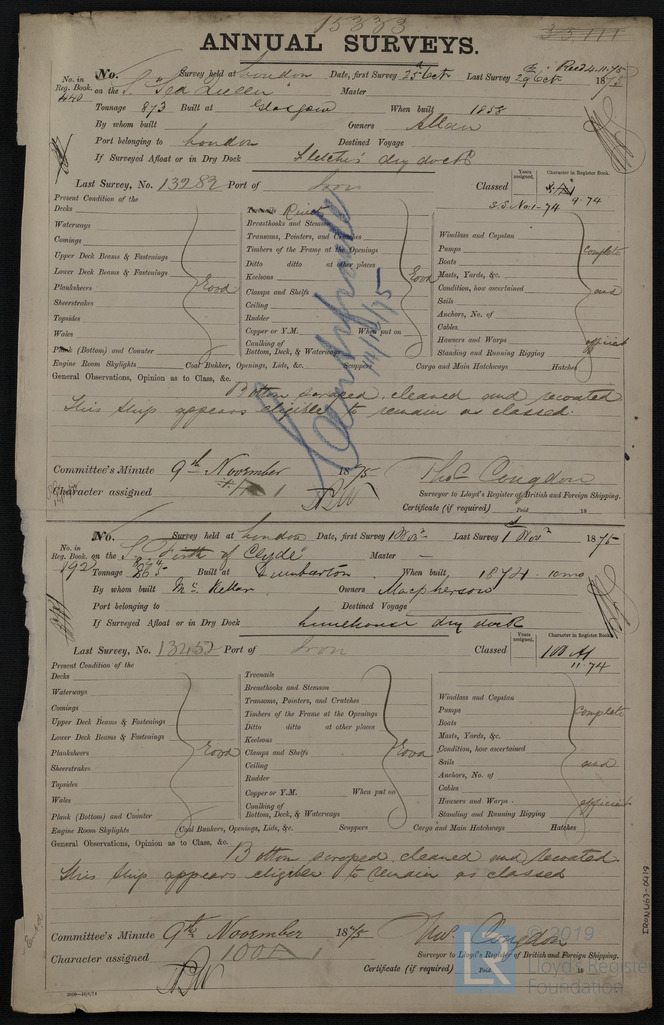 15383
ANNUAL SURVEYS.
Recd 4.11.75
No. Survey held at London Date, first Survey 25 Oct Last Survey 29 Oct 1875
No. in Reg. Book. on the S. "Sea Queen" Master
440
Tonnage 873 Built at Glasgow When built 1858
By whom built Owners Allan
Port belonging to London Destined Voyage
If Surveyed Afloat or in Dry Dock Fletcher's dry dock
Last Survey, No. 13282 Port of Iron Classed
Years assigned. Character in Register Book.
9.74
S.S. No.1-74
Present Condition of the
Decks
Waterways
Comings
Upper Deck Beams & Fastenings
Lower Deck Beams & Fastenings
Planksheers
Sheerstrakes
Topsides
Wales
Plank (Bottom) and Counter
Good
Treenails
Breasthooks and Stemson
Transoms, Pointers, and Crutches
Timbers of the Frame at the Openings
Ditto ditto at other places
Keelsons
Clamps and Shelfs
Ceiling
Rudder
Copper or Y.M. When put on
Caulking of
Bottom, Deck, & Waterways
Good
Windlass and Capstan
Pumps
Boats
Masts, Yards, &c.
Condition, how ascertained
Sails
Anchors, No. of
Cables
Hawsers and Warps
Standing and Running Rigging
complete
and
efficient
Engine Room Skylights Coal Bunker, Openings, Lids, &c. Scuppers Cargo and Main Hatchways Hatches
General Observations, Opinion as to Class, &c.
Bottom scraped, cleaned and recoated
This ship appears eligible to remain as classed.
Committee's Minute 9th November 1875 Thos. Congdon
Character assigned
Surveyor to Lloyd's Register of British and Foreign Shipping.
Certificate (if required) Paid 18
No. Survey held at London Date, first Survey 1 Nov Last Survey 1 Nov 1875
No. in Reg. Book. on the S. "Firth of Clyde" Master —
192
Tonnage Built at Dumbarton When built 1874 10mo
By whom built McKellar Owners Macpherson
Port belonging to Destined Voyage
If Surveyed Afloat or in Dry Dock Limehouse dry dock
Last Survey, No. 13452 Port of Iron Classed
Years assigned. Character in Register Book.
100 A1
11.74
Present Condition of the
Decks
Waterways
Comings
Upper Deck Beams & Fastenings
Lower Deck Beams & Fastenings
Planksheers
Sheerstrakes
Topsides
Wales
Plank (Bottom) and Counter
Good
Treenails
Breasthooks and Stemson
Transoms, Pointers, and Crutches
Timbers of the Frame at the Openings
Ditto ditto at other places
Keelsons
Clamps and Shelfs
Ceiling
Rudder
Copper or Y.M. When put on
Caulking of
Bottom, Deck, & Waterways
Good
Windlass and Capstan
Pumps
Boats
Masts, Yards, &c.
Condition, how ascertained
Sails
Anchors, No. of
Cables
Hawsers and Warps
Standing and Running Rigging
complete
and
efficient
Engine Room Skylights Coal Bunkers, Openings, Lids, &c. Scuppers Cargo and Main Hatchways Hatches
General Observations, Opinion as to Class, &c.
Bottom scraped, cleaned and recoated
This ship appears eligible to remain as classed
Committee's Minute 9th November 1875 Thos. Congdon
Character assigned 100A1
Surveyor to Lloyd's Register of British and Foreign Shipping.
Certificate (if required) Paid 18
IRON463-0419
© 2019
Lloyd's Register
Foundation